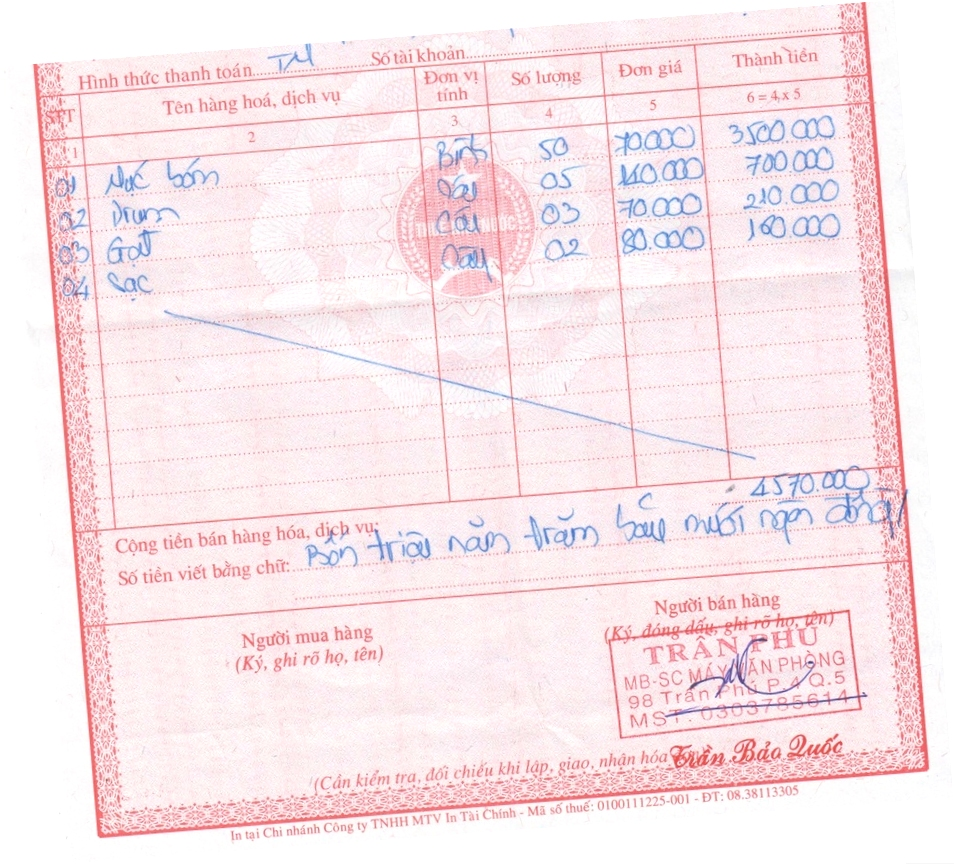 Hình thức thanh toán TM Số tài khoản
STT Tên hàng hoá, dịch vụ Đơn vị tính Số lượng Đơn giá Thành tiền
1 2 3 4 5 6 = 4 x 5
01 Mực bơm Bình 50 70.000 3500.000
02 Drum Cây 05 140.000 700.000
03 Gạt Cây 03 70.000 210.000
04 Sạc Cây 02 80.000 160.000
Cộng tiền bán hàng hóa, dịch vụ: 4570.000
Số tiền viết bằng chữ: Bốn triệu năm trăm bảy mươi ngàn đồng
Người mua hàng
(Ký, ghi rõ họ, tên)
Người bán hàng
(Ký, đóng dấu, ghi rõ họ, tên)
TRÂN PHÚ
MB-SC MÁY VĂN PHÒNG
98 Trần Phú P.4 Q.5
MST: 0303785614
Trần Bảo Quốc
(Cần kiểm tra, đối chiếu khi lập, giao, nhận hóa
In tại Chi nhánh Công ty TNHH MTV In Tài Chính - Mã số thuế: 0100111225-001 - ĐT: 08.38113305